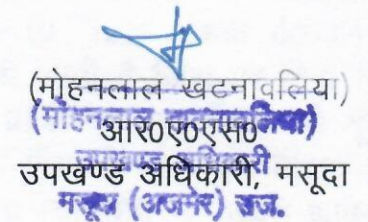 (मोहनलाल खटनावलिया)
(मोहनलाल खटनावलिया)
आर०ए०एस०
उपखण्ड अधिकारी
उपखण्ड अधिकारी, मसूदा
मसूदा (अजमेर) राज.